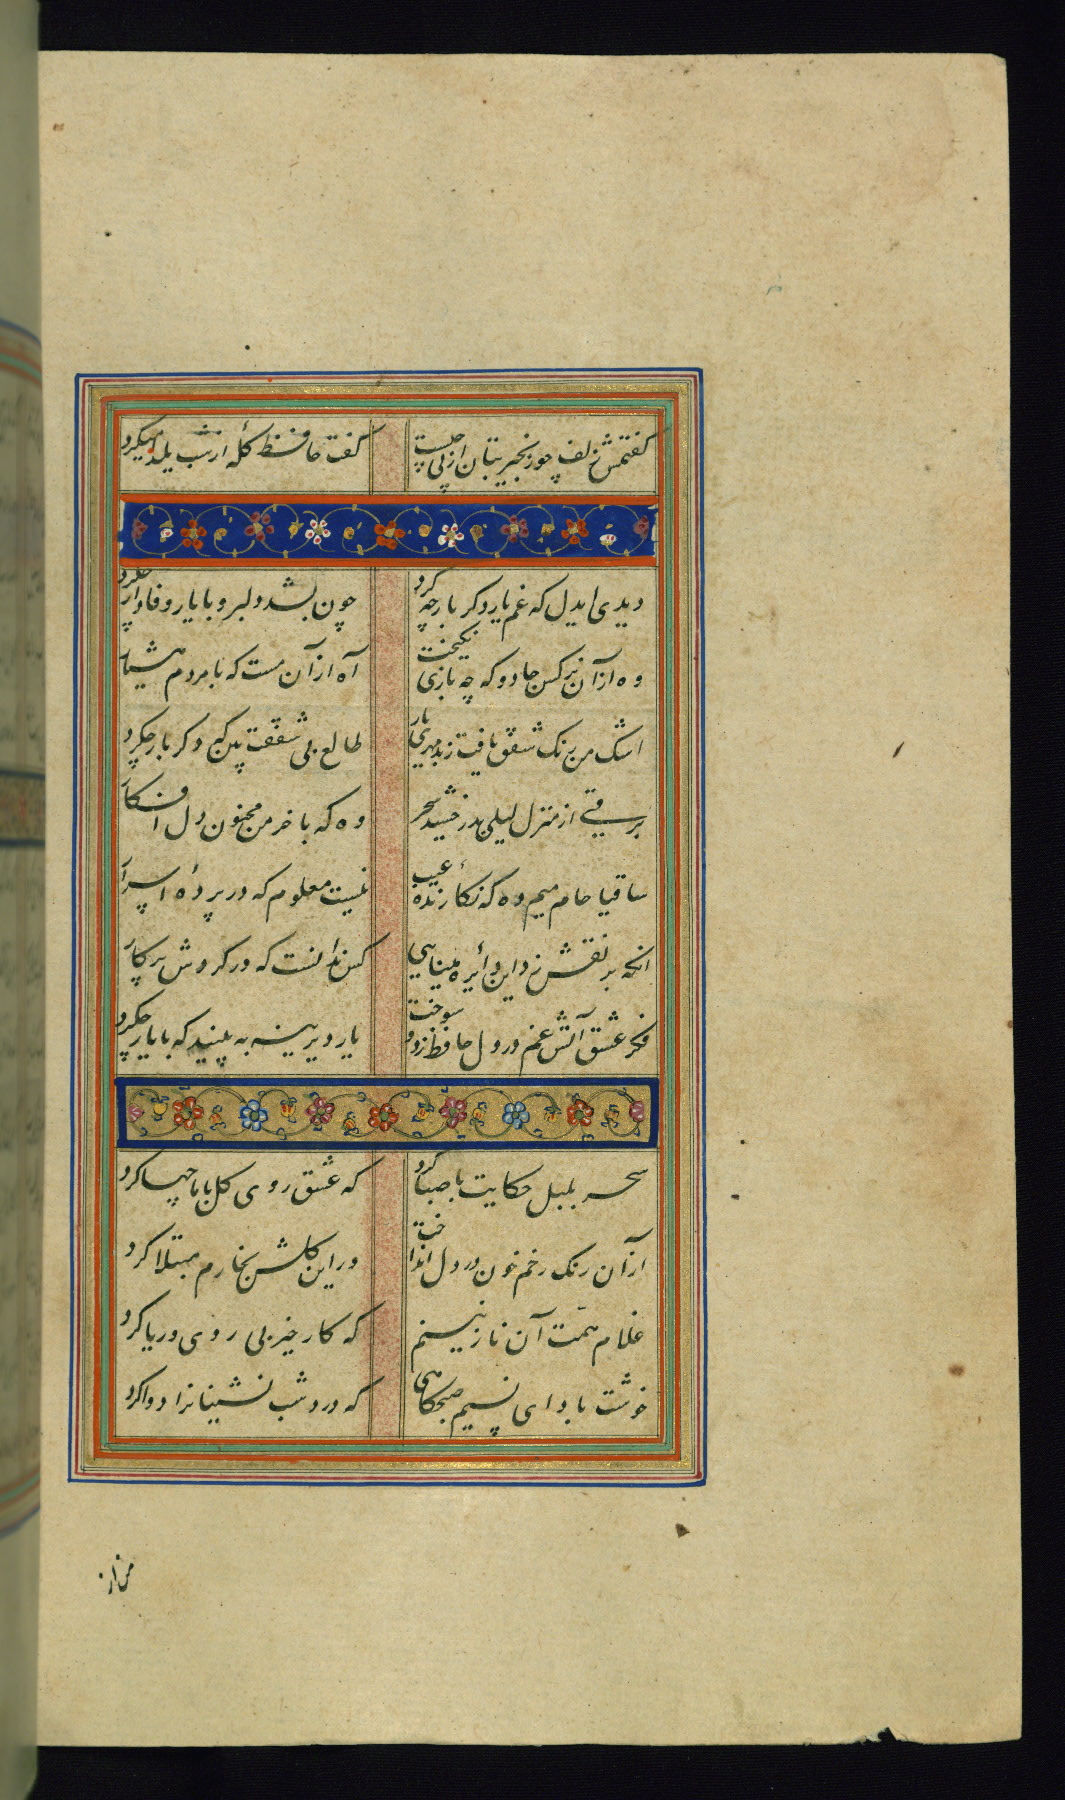 گفتمش زلف چو زنجیر بتان از پی چیست گفت حافظ گلهٔ از شب یلدا میکرد
دیدی ایدل که غم یار دکر بار چه کرد چون بشد دلبر و با یار وفادار چکرد
وه ازآن نرکس جادو که چه بازی انکیخت آه ازآن مست که با مردم هشیار
اشک من رنک شفق یافت ز بد مهری یار طالع بی شفقت بین که دکر بار چکرد
برقی از منزل لیلی بدرخشید سحر وه که با خرمن مجنون دل افکار
ساقیا جام میم ده که نکارندهٔ غیب نیست معلوم که در پردهٔ اسرار
انکه بر نقش زد این دائره مینایی کس ندانست که در کردش پرکار
فکر عشق آتش غم در دل حافظ زد و سوخت یار دیرینه به بینید که با یار چکرد
سحر بلبل حکایت با صبا کرد که عشق روی کل با ما چها کرد
ازآن رنک رخم خون در دل انداخت در این کلشن بخارم مبتلا کرد
غلام همّت آن نازنینم که کار خیر بی روی و ریا کرد
خوشت باد ای نسیم صبحکاهی که درد شب نشینانرا دوا کرد
من از